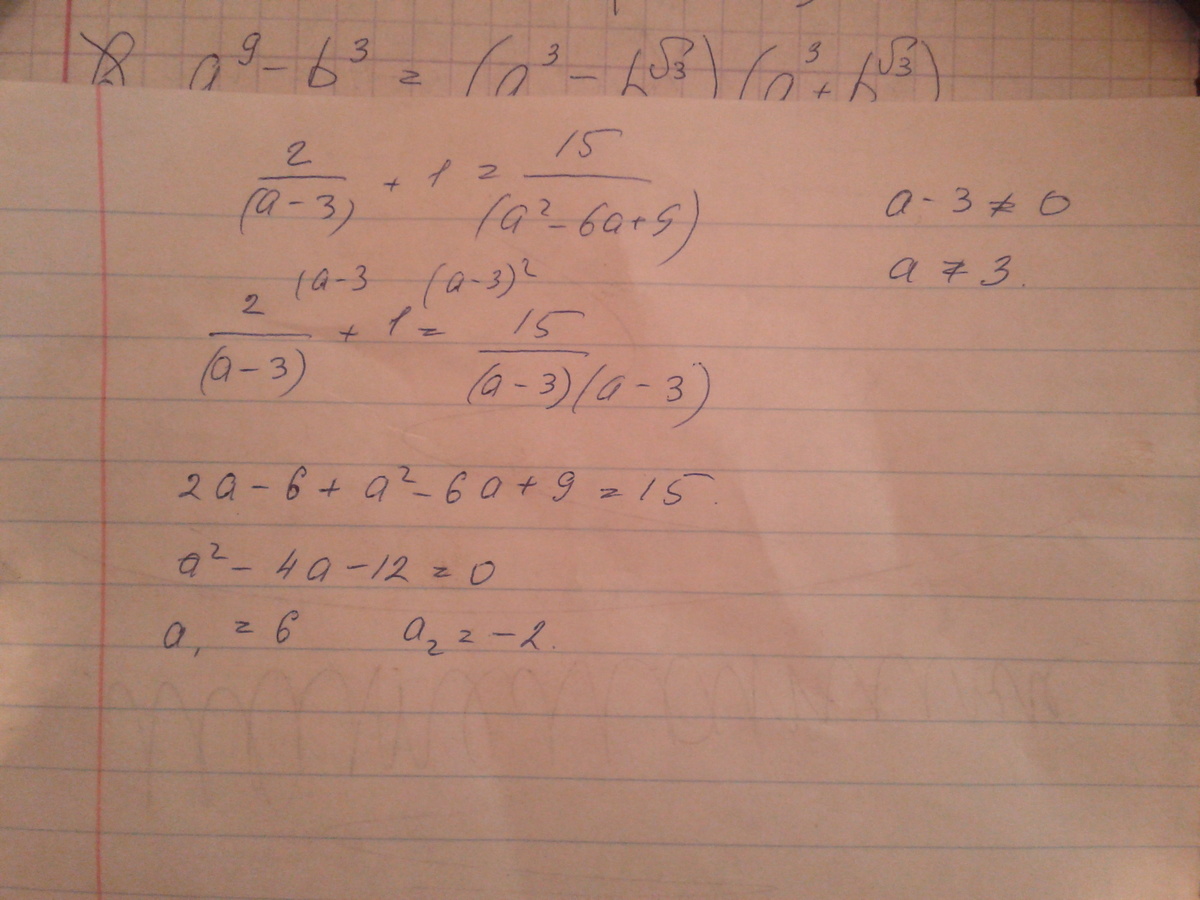 a⁹ - b³ = (a³ - b^√3) (a³ + b^√3)
2/(a-3) + 1 = 15/(a² - 6a + 9)
a - 3 ≠ 0
a ≠ 3.
(a-3 (a-3)²
2/(a-3) + 1 = 15/((a-3)(a-3))
2a - 6 + a² - 6a + 9 = 15.
a² - 4a - 12 = 0
a₁ = 6 a₂ = -2.